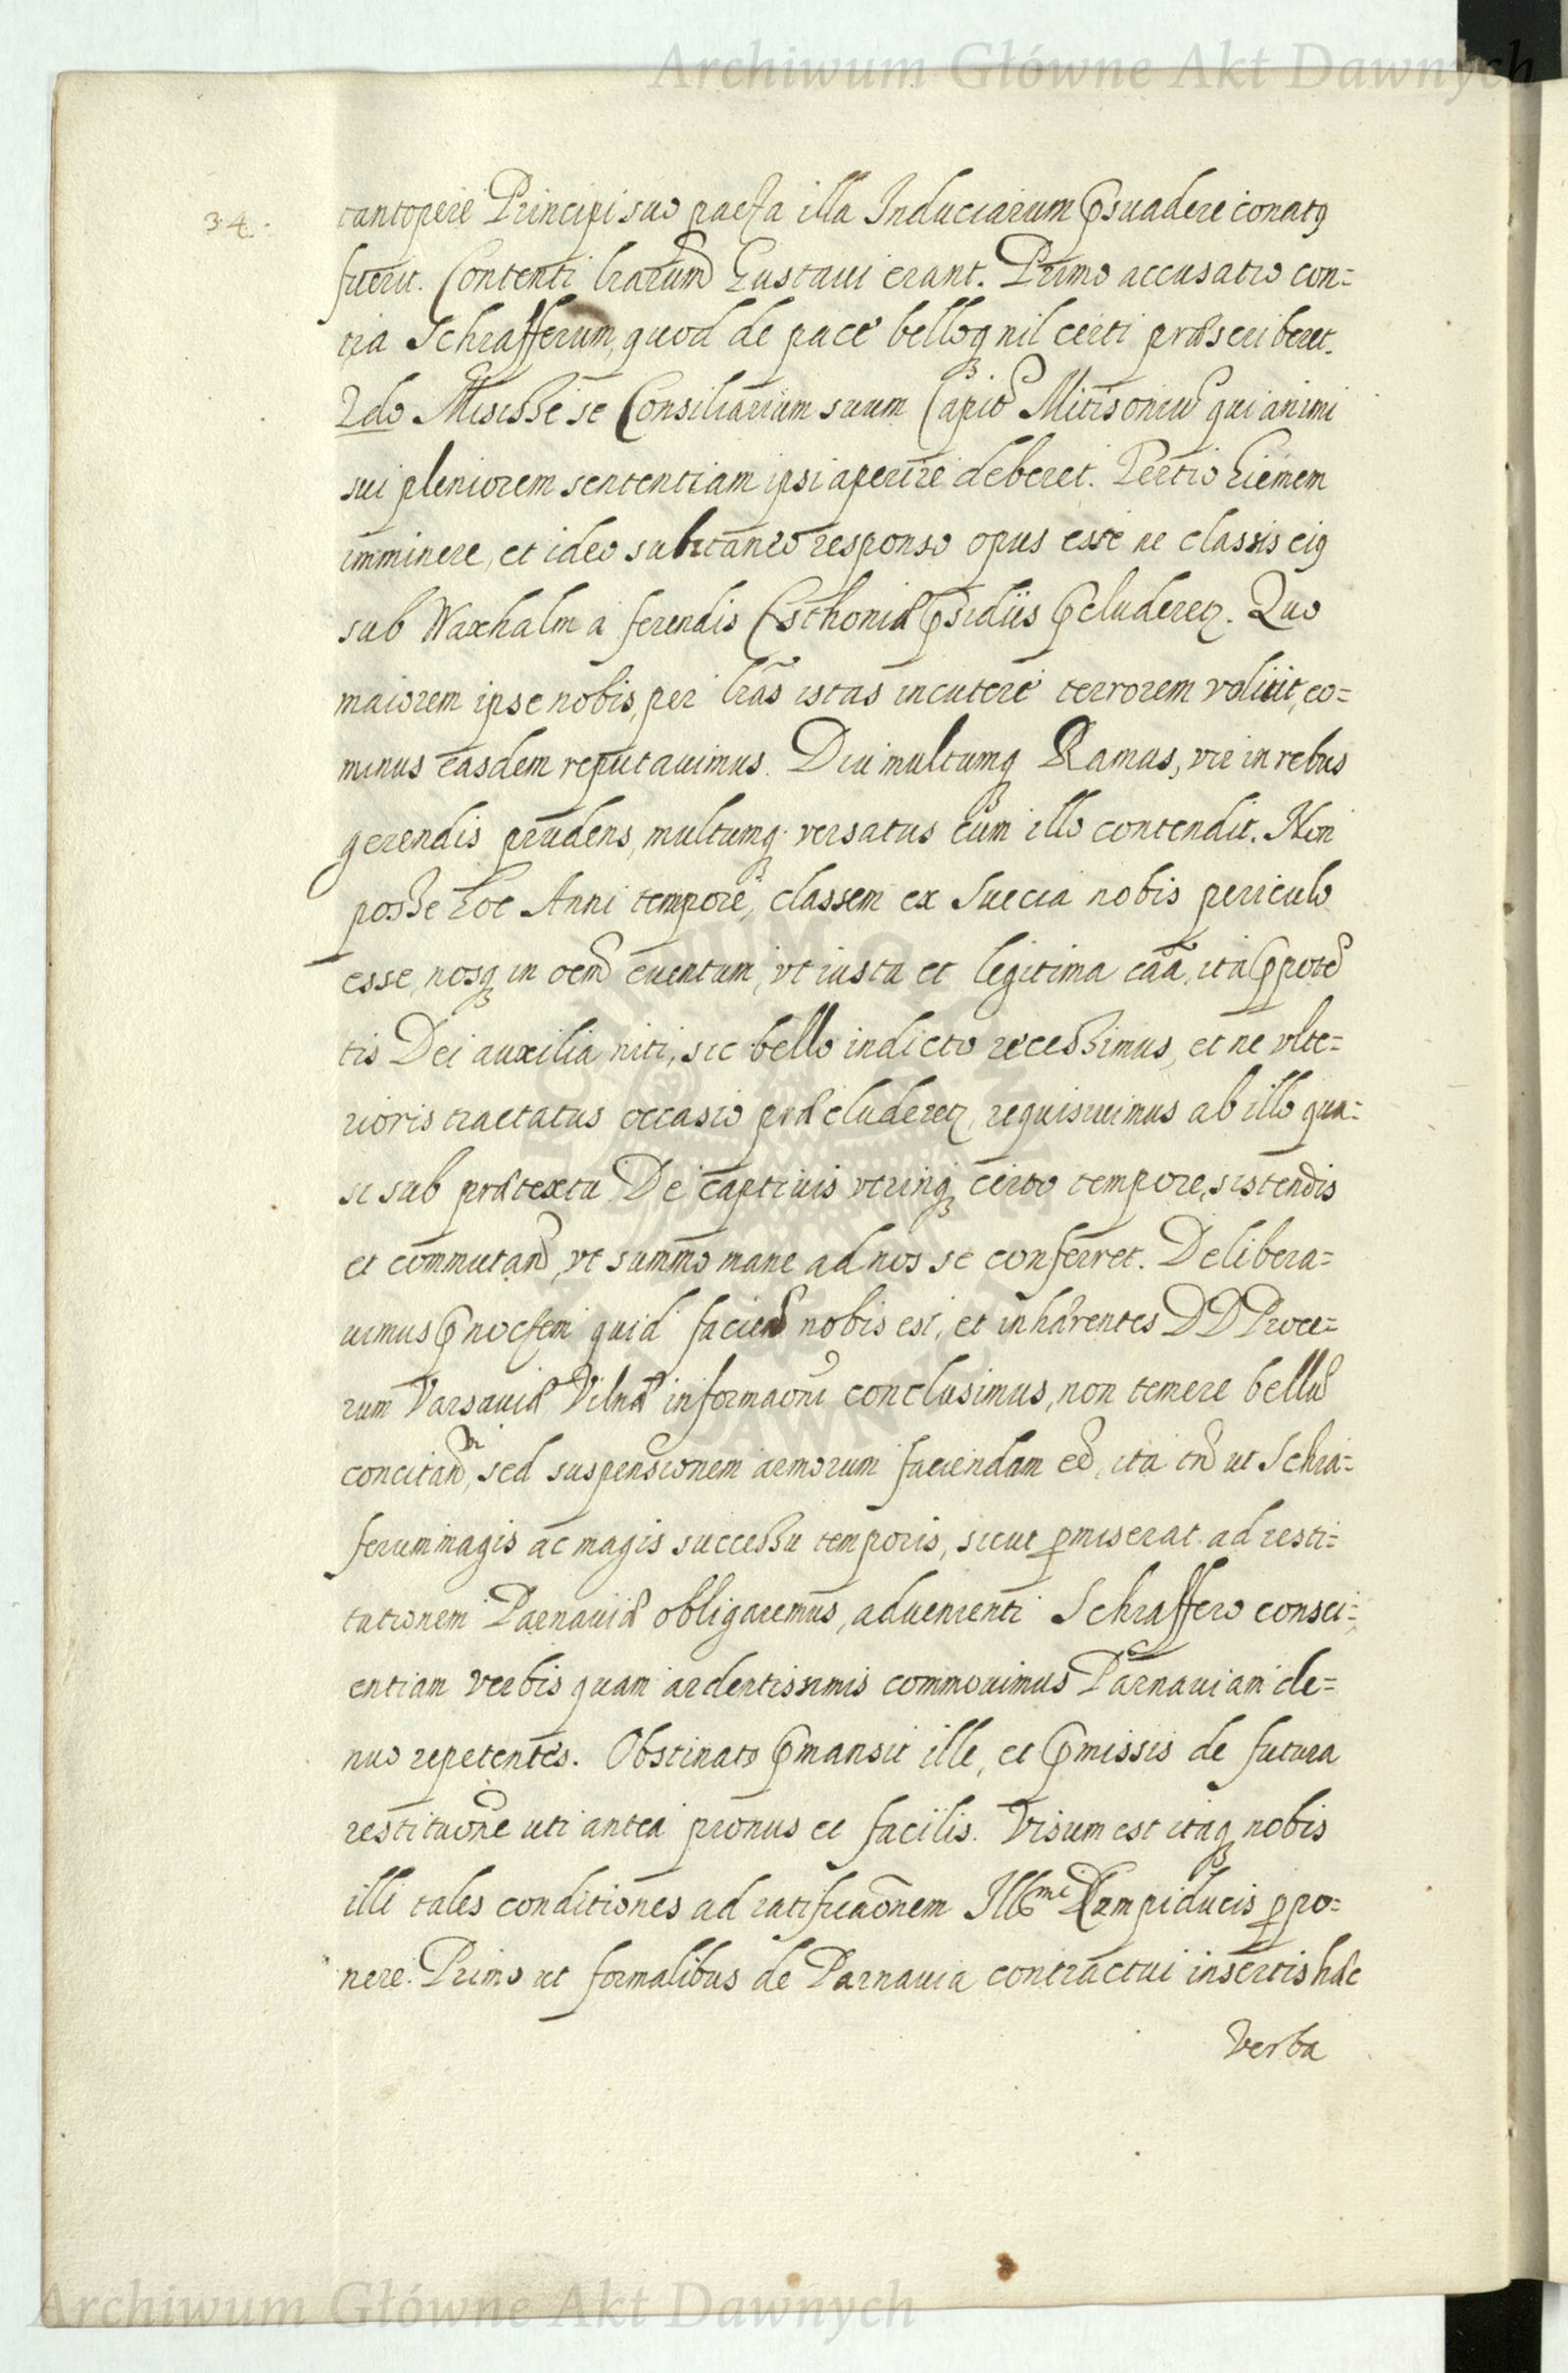 Archiwum Główne Akt Dawnych
34.
tantopere Principi suo pacta illa Induciarum ꝑsuadere conatꝰ
fuerit. Contenti lrarum Gustaui erant. Primo accusatio con=
tra Schrafferum, quod de pace belloqꝫ nil certi præscriberet.
2do Misisse se Consiliarium suum Capit Mitisoniu qui animi
sui pleniorem sententiam ipsi aperire deberet. Tertio hiemem
imminere, et ideo subitaneo responso opus esse ne classis eiꝰ
sub Waxhalm a ferendis Esthoniæ ꝑsidiis ꝑcluderetꝛ. Quo
maiorem ipse nobis, per lras istas incutere terrorem voluit, eo=
minus easdem reputauimus. Diu multumqꝫ Ramas, vir in rebus
gerendis prudens, multumqꝫ versatus cum illo contendit. Non
posse hoc Anni tempore, classem ex Suecia nobis periculo
esse, nosqꝫ in oem euentum, vt iusta et legitima caa, ita ꝑpote
tis Dei auxilia niti, sic bello indicto recessimus, et ne vlte=
rioris tractatus occasio præcluderetꝛ, requisiuimus ab illo qua=
si sub prætextu De captiuis vtrinqꝫ certo tempore, sistendis
et commutand, vt summo mane ad nos se conferret. Delibera=
uimus ꝑ noctem quid faciend nobis esi, et inhærentes DD Proce=
rum Varsauiæ Vilnæ informaoni conclusimus, non temere bellu
concitand, sed suspensionem armorum faciendam ee, ita tn ut Schra=
ferum magis ac magis successu temporis, sicut ꝓmiserat ad resti=
tutionem Parnauiæ obligaremus, aduenienti Schraffero consci=
entiam verbis quam ardentissimis commouimus Parnauiam de=
nuo repetentes. Obstinato ꝑmansit ille, et ꝑmissis de futura
restituone uti antea pronus et facilis. Visum est itaqꝫ nobis
illi tales conditiones ad ratificaonem Illmi Campiducis ꝓpo=
nere. Primo ut formalibus de Parnauia contractui insertis hæc
verba
Archiwum Główne Akt Dawnych